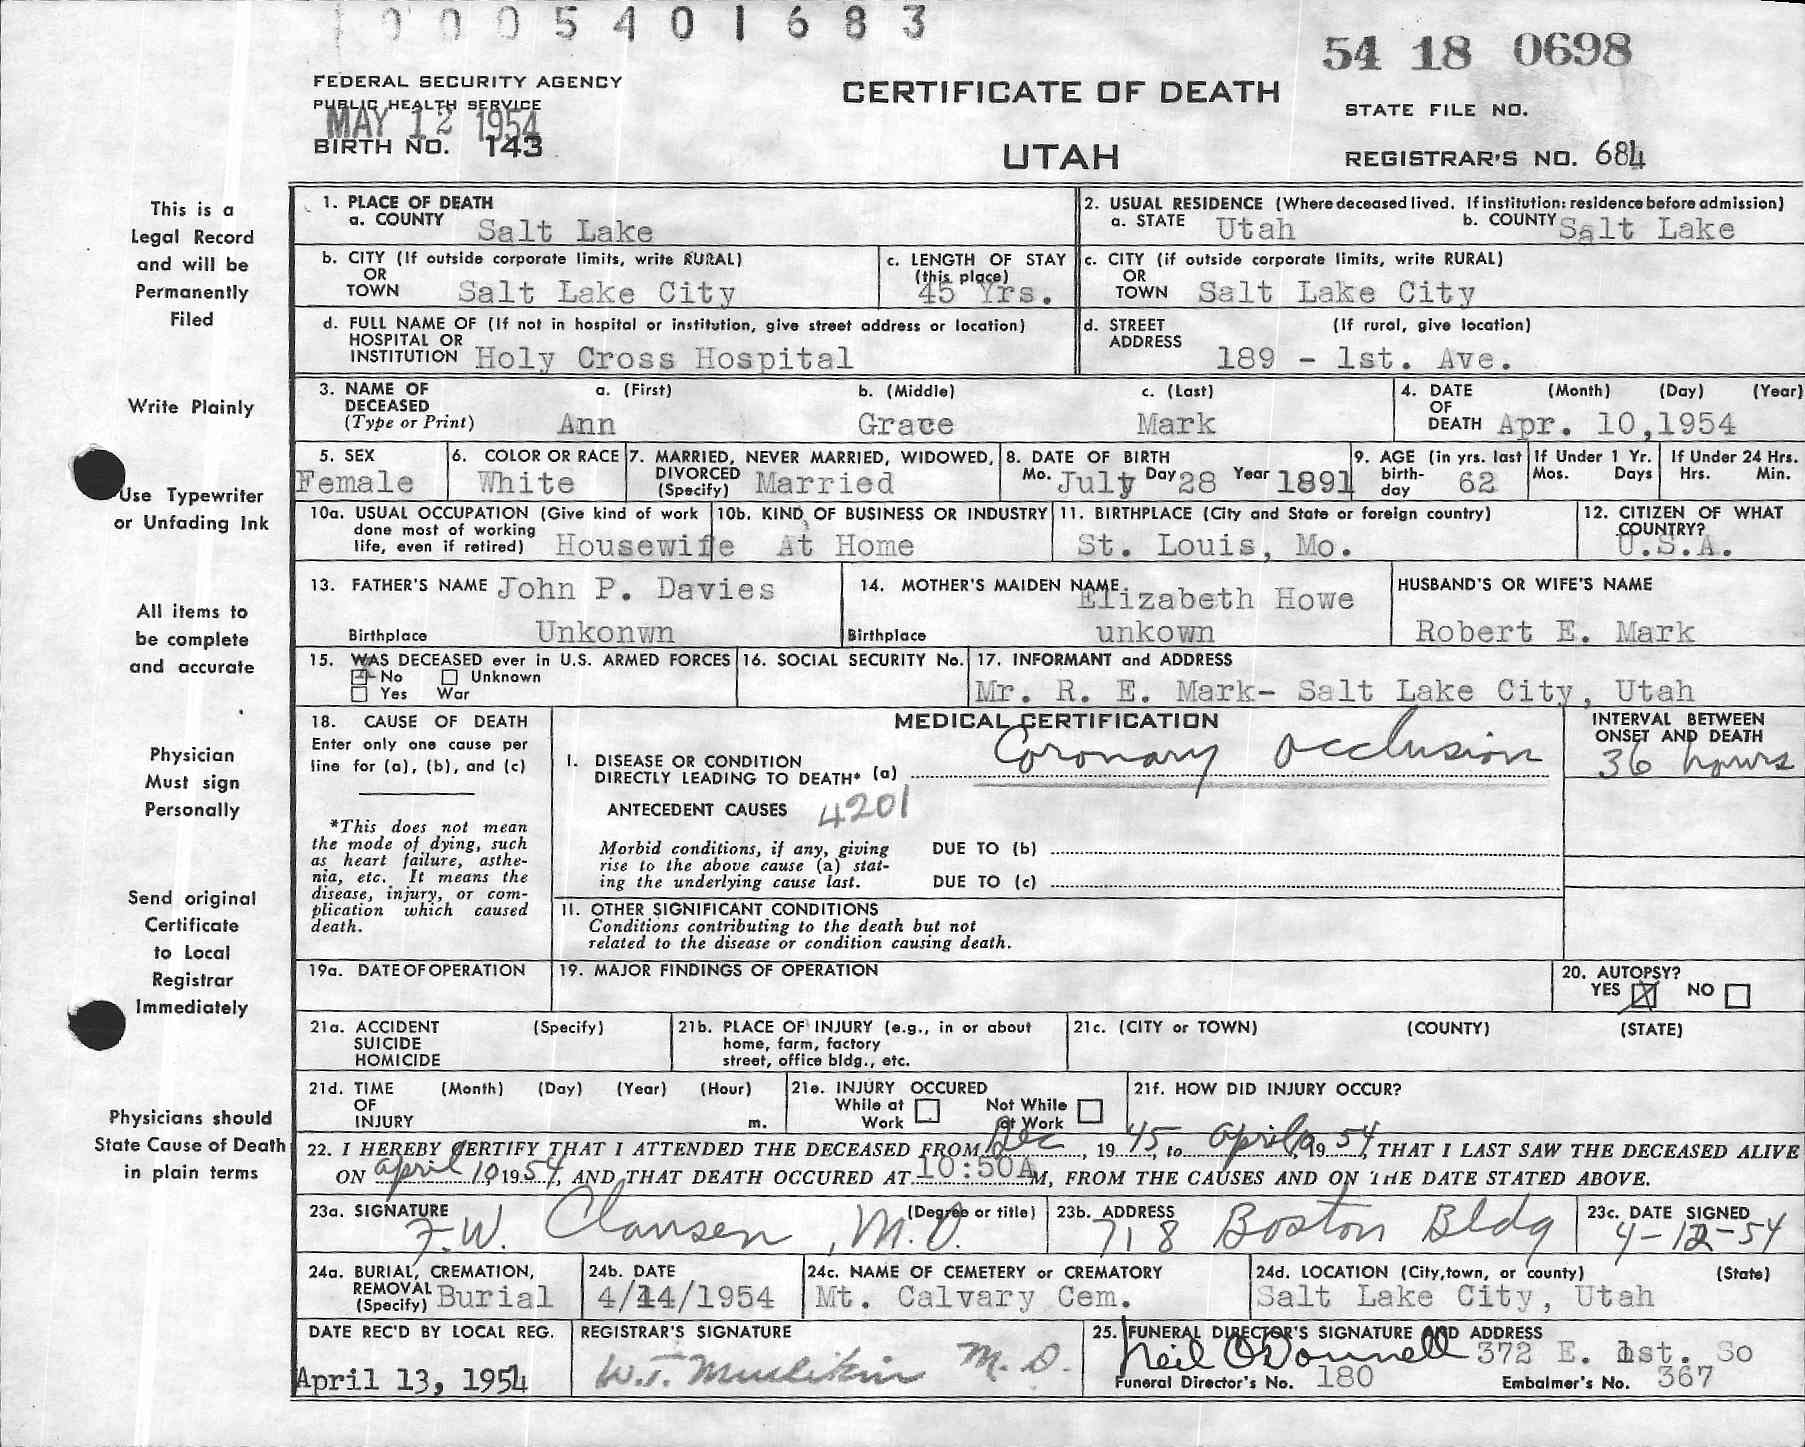 0005401683
54 18 0698
FEDERAL SECURITY AGENCY
PUBLIC HEALTH SERVICE
MAY 12 1954
BIRTH NO. 143
CERTIFICATE OF DEATH
UTAH
STATE FILE NO.
REGISTRAR'S NO. 684
This is a
Legal Record
and will be
Permanently
Filed
Write Plainly
Use Typewriter
or Unfading Ink
All items to
be complete
and accurate
Physician
Must sign
Personally
Send original
Certificate
to Local
Registrar
Immediately
Physicians should
State Cause of Death
in plain terms
1. PLACE OF DEATH
a. COUNTY Salt Lake
2. USUAL RESIDENCE (Where deceased lived. If institution: residence before admission)
a. STATE Utah b. COUNTY Salt Lake
b. CITY (If outside corporate limits, write RURAL)
OR
TOWN Salt Lake City
c. LENGTH OF STAY
(this place)
45 Yrs.
c. CITY (if outside corporate limits, write RURAL)
OR
TOWN Salt Lake City
d. FULL NAME OF (If not in hospital or institution, give street address or location)
HOSPITAL OR
INSTITUTION Holy Cross Hospital
d. STREET (If rural, give location)
ADDRESS
189 - 1st. Ave.
3. NAME OF a. (First) b. (Middle) c. (Last)
DECEASED
(Type or Print) Ann Grace Mark
4. DATE (Month) (Day) (Year)
OF
DEATH Apr. 10,1954
5. SEX
Female
6. COLOR OR RACE
White
7. MARRIED, NEVER MARRIED, WIDOWED,
DIVORCED
(Specify) Married
8. DATE OF BIRTH
Mo. July Day 28 Year 1891
9. AGE (in yrs. last
birth-
day 62
If Under 1 Yr.
Mos. Days
If Under 24 Hrs.
Hrs. Min.
10a. USUAL OCCUPATION (Give kind of work
done most of working
life, even if retired) Housewife
10b. KIND OF BUSINESS OR INDUSTRY
At Home
11. BIRTHPLACE (City and State or foreign country)
St. Louis, Mo.
12. CITIZEN OF WHAT
COUNTRY?
U.S.A.
13. FATHER'S NAME John P. Davies
Birthplace Unkonwn
14. MOTHER'S MAIDEN NAME Elizabeth Howe
Birthplace unkown
HUSBAND'S OR WIFE'S NAME
Robert E. Mark
15. WAS DECEASED ever in U.S. ARMED FORCES
No Unknown
Yes War
16. SOCIAL SECURITY No.
17. INFORMANT and ADDRESS
Mr. R. E. Mark- Salt Lake City, Utah
18. CAUSE OF DEATH
Enter only one cause per
line for (a), (b), and (c)
*This does not mean
the mode of dying, such
as heart failure, asthe-
nia, etc. It means the
disease, injury, or com-
plication which caused
death.
MEDICAL CERTIFICATION
I. DISEASE OR CONDITION
DIRECTLY LEADING TO DEATH* (a) Coronary occlusion
ANTECEDENT CAUSES 4201
Morbid conditions, if any, giving
rise to the above cause (a) stat-
ing the underlying cause last.
DUE TO (b)
DUE TO (c)
II. OTHER SIGNIFICANT CONDITIONS
Conditions contributing to the death but not
related to the disease or condition causing death.
INTERVAL BETWEEN
ONSET AND DEATH
36 hours
19a. DATE OF OPERATION
19. MAJOR FINDINGS OF OPERATION
20. AUTOPSY?
YES X NO
21a. ACCIDENT (Specify)
SUICIDE
HOMICIDE
21b. PLACE OF INJURY (e.g., in or about
home, farm, factory
street, office bldg., etc.
21c. (CITY or TOWN) (COUNTY) (STATE)
21d. TIME (Month) (Day) (Year) (Hour)
OF
INJURY m.
21e. INJURY OCCURED
While at Not While
Work at Work
21f. HOW DID INJURY OCCUR?
22. I HEREBY CERTIFY THAT I ATTENDED THE DECEASED FROM Dec, 1945, to April 10, 1954, THAT I LAST SAW THE DECEASED ALIVE
ON April 10, 1954, AND THAT DEATH OCCURED AT 10:50A M, FROM THE CAUSES AND ON THE DATE STATED ABOVE.
23a. SIGNATURE (Degree or title)
F.W. Clausen, M.D.
23b. ADDRESS
718 Boston Bldg
23c. DATE SIGNED
4-12-54
24a. BURIAL, CREMATION,
REMOVAL
(Specify) Burial
24b. DATE
4/14/1954
24c. NAME OF CEMETERY or CREMATORY
Mt. Calvary Cem.
24d. LOCATION (City, town, or county) (State)
Salt Lake City, Utah
DATE REC'D BY LOCAL REG.
April 13, 1954
REGISTRAR'S SIGNATURE
W.T. M. D.
25. FUNERAL DIRECTOR'S SIGNATURE AND ADDRESS
Neil O'Donnell 372 E. 1st. So
Funeral Director's No. 180 Embalmer's No. 367